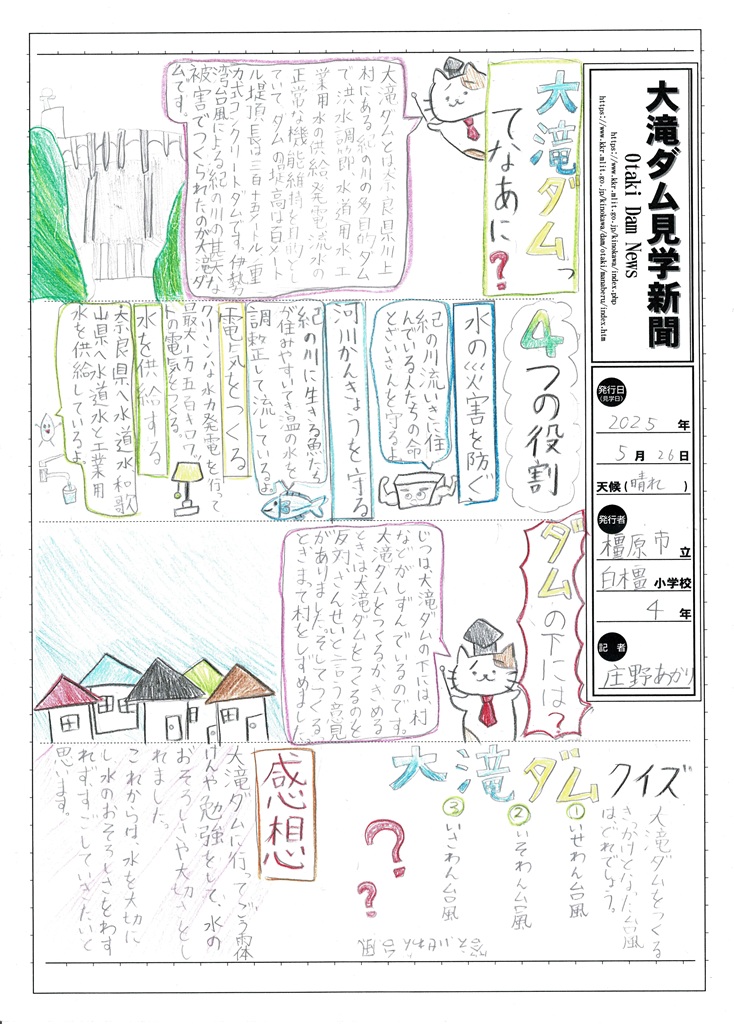 大滝ダム見学新聞
Otaki Dam News
https://www.kkr.mlit.go.jp/kinokawa/index.php
https://www.kkr.mlit.go.jp/kinokawa/dam/otaki/manaberu/index.htm
発行日
(見学日)
2025年
5月26日
天候(晴れ)
発行者
橿原市立
白橿小学校
4年
記者
庄野あかり
大滝ダムっ
てなあに?
大滝ダムとは奈良県川上
村にある紀の川の多目的ダム
で洪水調節、水道用水工
業用水の供給、発電、流水の
正常な機能維持を目的と
していて、ダムの堤高は百メート
ル堤頂長三百十五メートル重
力式コンクリートダムです。伊勢
湾台風による紀の川の甚大な
被害でつくられたのが大滝ダ
ムです。
4つの役割
水の災害を防ぐ
紀の川流いきに住
んでいる人たちの命
とざいさんを守るよ。
河川かんきょうを守る
紀の川に生きる魚たち
が住みやすい水温の水を
調整して流しているよ。
電気をつくる
クリーンな水力発電を行って
最大一万五百キロワッ
トの電気をつくる。
水を供給する
奈良県へ水道水和歌
山県へ水道水と工業用
水を供給しているよ。
ダムの下には?
じつは、大滝ダムの下には、村
などがしずんでいるのです。
大滝ダムをつくるかきめる
ときは大滝ダムをつくるのを
反対、さんせいと言う意見
がありました。そしてつくる
ときまって村をしずめました。
大滝ダムクイズ
大滝ダムをつくる
きっかけとなった台風
はどれでしょう。
①いせわん台風
②いそわん台風
③いさわん台風
??
感想
大滝ダムに行ってごう雨体
けんや勉強をして、水の
おそろしさや大切さをし
れました。
これからは、水を大切に
し水のおそろしさをわす
れずすごしていきたいと
思います。